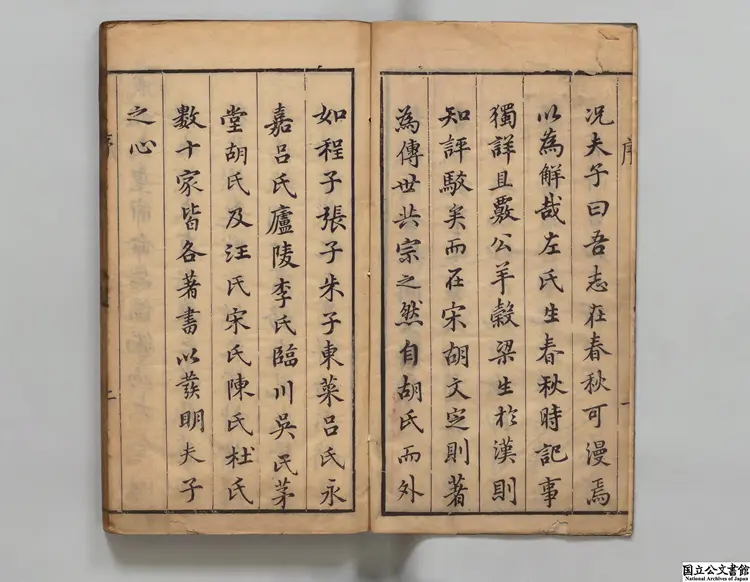 況夫子曰吾志在春秋可漫焉
以為解哉左氏生春秋時記事
獨詳且覈公羊穀梁生於漢則
知評駁矣而在宋胡文定則著
為傳世共宗之然自胡氏而外
如程子張子朱子東萊呂氏永
嘉呂氏廬陵李氏臨川吳氏茅
堂胡氏及汪氏宋氏陳氏杜氏
數十家皆各著書以發明夫子
之心
序
国立公文書館
National Archives of Japan